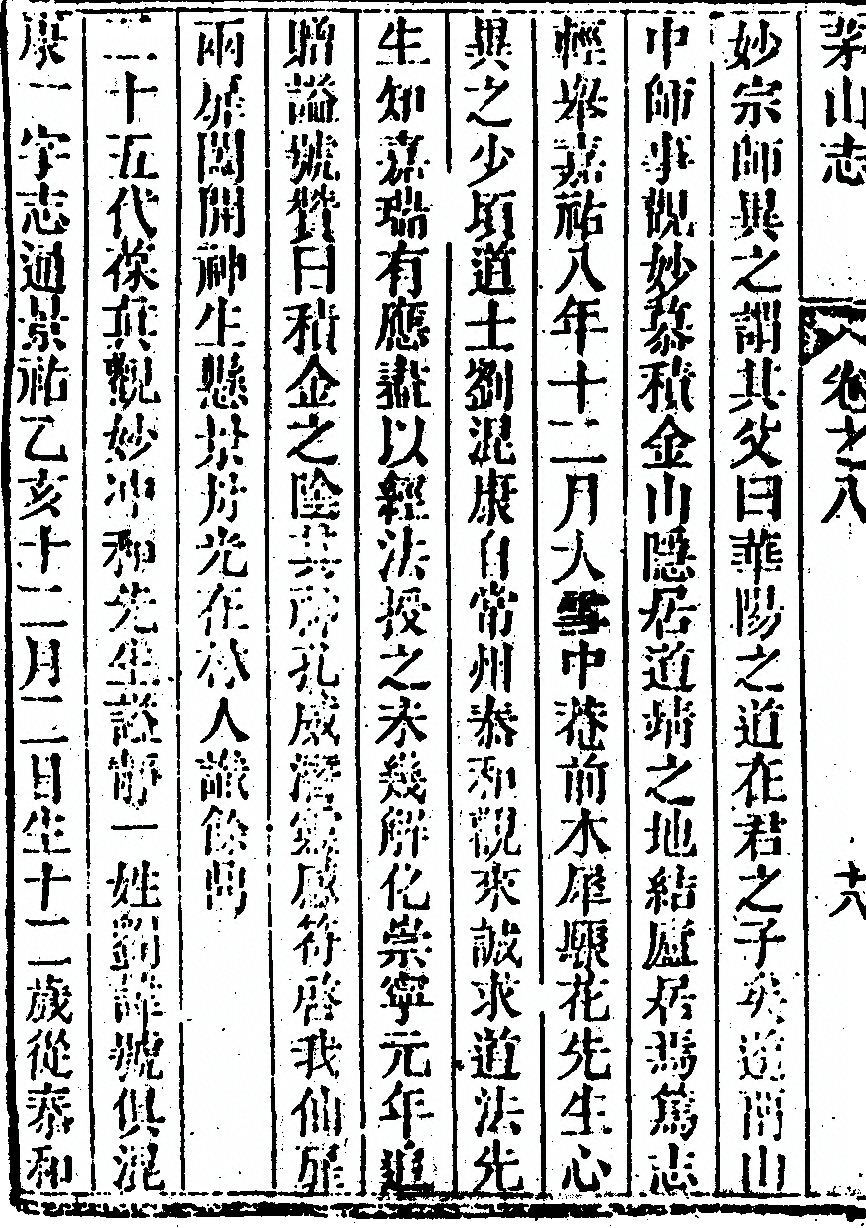 茅山志 卷之八 十六
妙宗師異之謂其父曰華陽之道在君之子矣遊句山
中師事觀妙慕積金山隱居道靖之地結廬居焉篤志
輕舉嘉祐八年十二月大雪中菴前木犀驟花先生心
異之少頃道士劉混康自常州泰和觀來誠求道法先
生知嘉瑞有應盡以經法授之未幾解化崇寧元年追
贈諡號贊曰積金之陰其神孔威潛靈感符啓我仙扉
兩扉闔開神生懸景丹光在林人識餘
二十五代葆真觀妙冲和先生諡靜一姓劉諱號俱混
康一字志通景祐乙亥十二月二日生十二歲從泰和